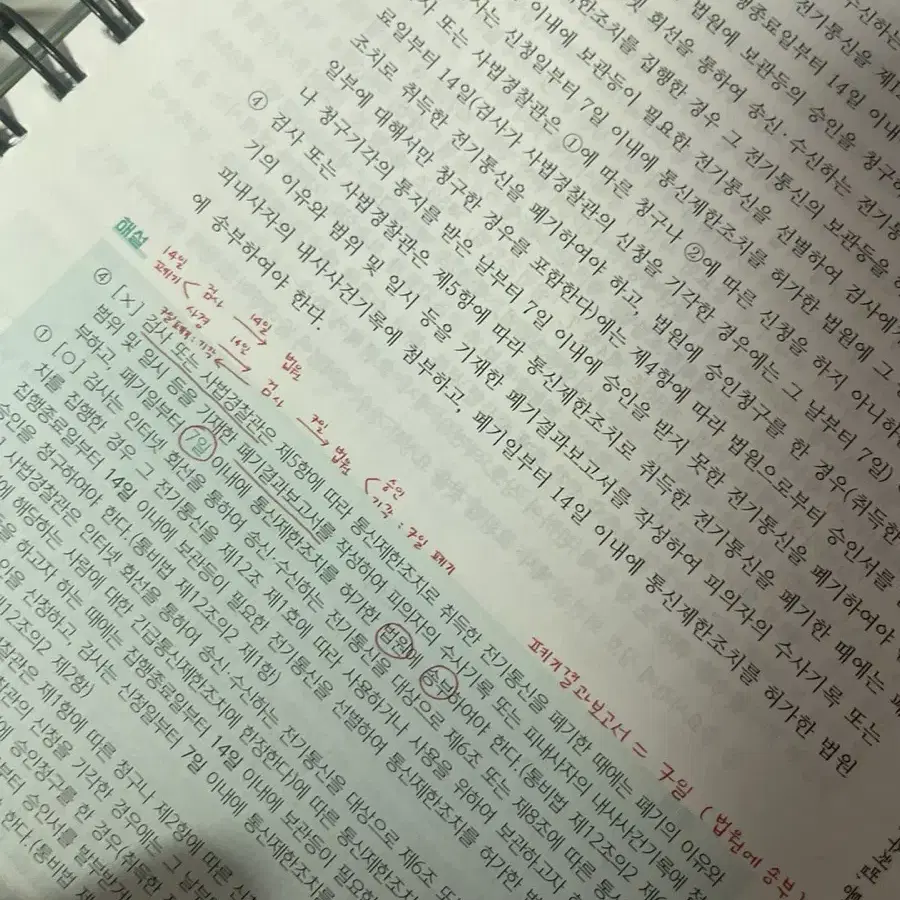 수신하는
전기통신을 제1
이내에 보관등이 회선을 통하여 송신·수신하는 전기통
조치를 집행한 경우 그 전기통신의 보관등을
필요한 전기통신을 선별하여 검사에게
사는 신청일부터 7일 이내에 통신제한조치를 허가한 법원에 그
사 또는 사법경찰관은 ①에 따른 청구나 ②에 따른 신청을 하지 아니하
료일부터 14일(검사가 사법경찰관의 신청을 기각한 경우에는 그 날부터 7일)
조치로 취득한 전기통신을 폐기하여야 하고, 법원에 승인청구를 한 경우(취득한
일부에 대해서만 청구한 경우를 포함한다)에는 제4항에 따라 법원으로부터 승인서를
나 청구기각의 통지를 받은 날부터 7일 이내에 승인을 받지 못한 전기통신을 폐기하여야
④ 검사 또는 사법경찰관은 제5항에 따라 통신제한조치로 취득한 전기통신을 폐기한 때에는 폐
기의 이유와 범위 및 일시 등을 기재한 폐기결과보고서를 작성하여 피의자의 수사기록 또는
피내사자의 내사사건기록에 첨부하고, 폐기일부터 14일 이내에 통신제한조치를 허가한 법원
에 송부하여야 한다.
해설
14일
폐기 < 검사
사경
14일
법원
14일
검사
7일
법원 < 승인
기각 : 7일 폐기
폐기결과보고서 = 7일 (법원에 송부)
④ [×] 검사 또는 사법경찰관은 제5항에 따라 통신제한조치로 취득한 전기통신을 폐기한 때에는 폐기의 이유와
범위 및 일시 등을 기재한 폐기결과보고서를 작성하여 피의자의 수사기록 또는 피내사자의 내사사건기록에 첨
부하고, 폐기일부터 7일 이내에 통신제한조치를 허가한 법원에 송부하여야 한다.(통비법 제12조의2 제6
① [○] 검사는 인터넷 회선을 통하여 송신·수신하는 전기통신을 대상으로 제6조 또는 제8조에 따른 통
치를 집행한 경우 그 전기통신을 제12조 제1호에 따라 사용하거나 사용을 위하여 보관하고자
집행종료일부터 14일 이내에 보관등이 필요한 전기통신을 선별하여 통신제한조치를 허가한 법
승인을 청구하여야 한다.(통비법 제12조의2 제1항)
사법경찰관은 인터넷 회선을 통하여 송신·수신하는 전기통신을 대상으로 제6조 또
에 해당하는 사람에 대한 긴급통신제한조치에 한정한다)에 따른 통신제한조치
을 하고자 하는 때에는 집행종료일부터 14일 이내에 보관등이 필요한
을 신청하고, 검사는 신청일부터 7일 이내에 통신제한조치를
12조의2 제2항)
찰관은 제1항에 따른 청구나 제2항에 따른 신
관의 신청을 기각한 경우에는 그 날부
에 승인청구를 한 경우(취득한
부터 승인서를 발부받거
한다.(통비법 제